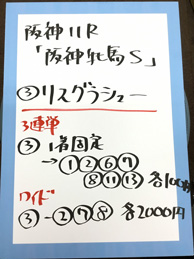 阪神11R
「阪神牝馬S」
③リスグラシュー
3連単
③ 1着固定
→①②⑥⑦
⑧⑪⑬ 各100円
ワイド
③-②⑦⑧ 各2000円